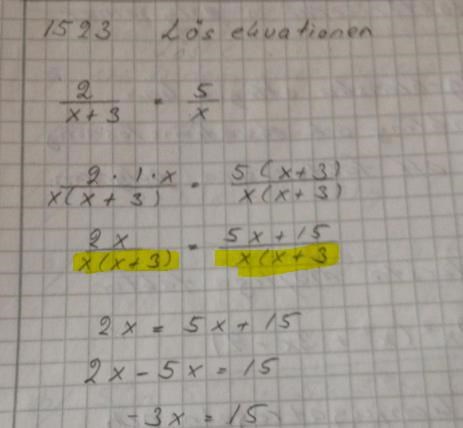 1523 Lös ekvationen
2/(x+3) = 5/x
2·1·x/x(x+3) = 5(x+3)/x(x+3)
2x/x(x+3) = 5x+15/x(x+3
2x = 5x+15
2x-5x = 15
-3x = 15